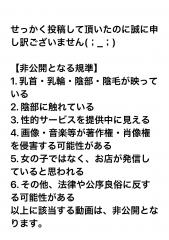 せっかく投稿して頂いたのに誠に申
し訳ございません(；_；)
【非公開となる規準】
1. 乳首・乳輪・陰部・陰毛が映って
いる
2. 陰部に触れている
3. 性的サービスを提供中に見える
4. 画像・音楽等が著作権・肖像権
を侵害する可能性がある
5. 女の子ではなく、お店が発信し
ていると思われる
6. その他、法律や公序良俗に反す
る可能性がある
以上に該当する動画は、非公開とな
ります。